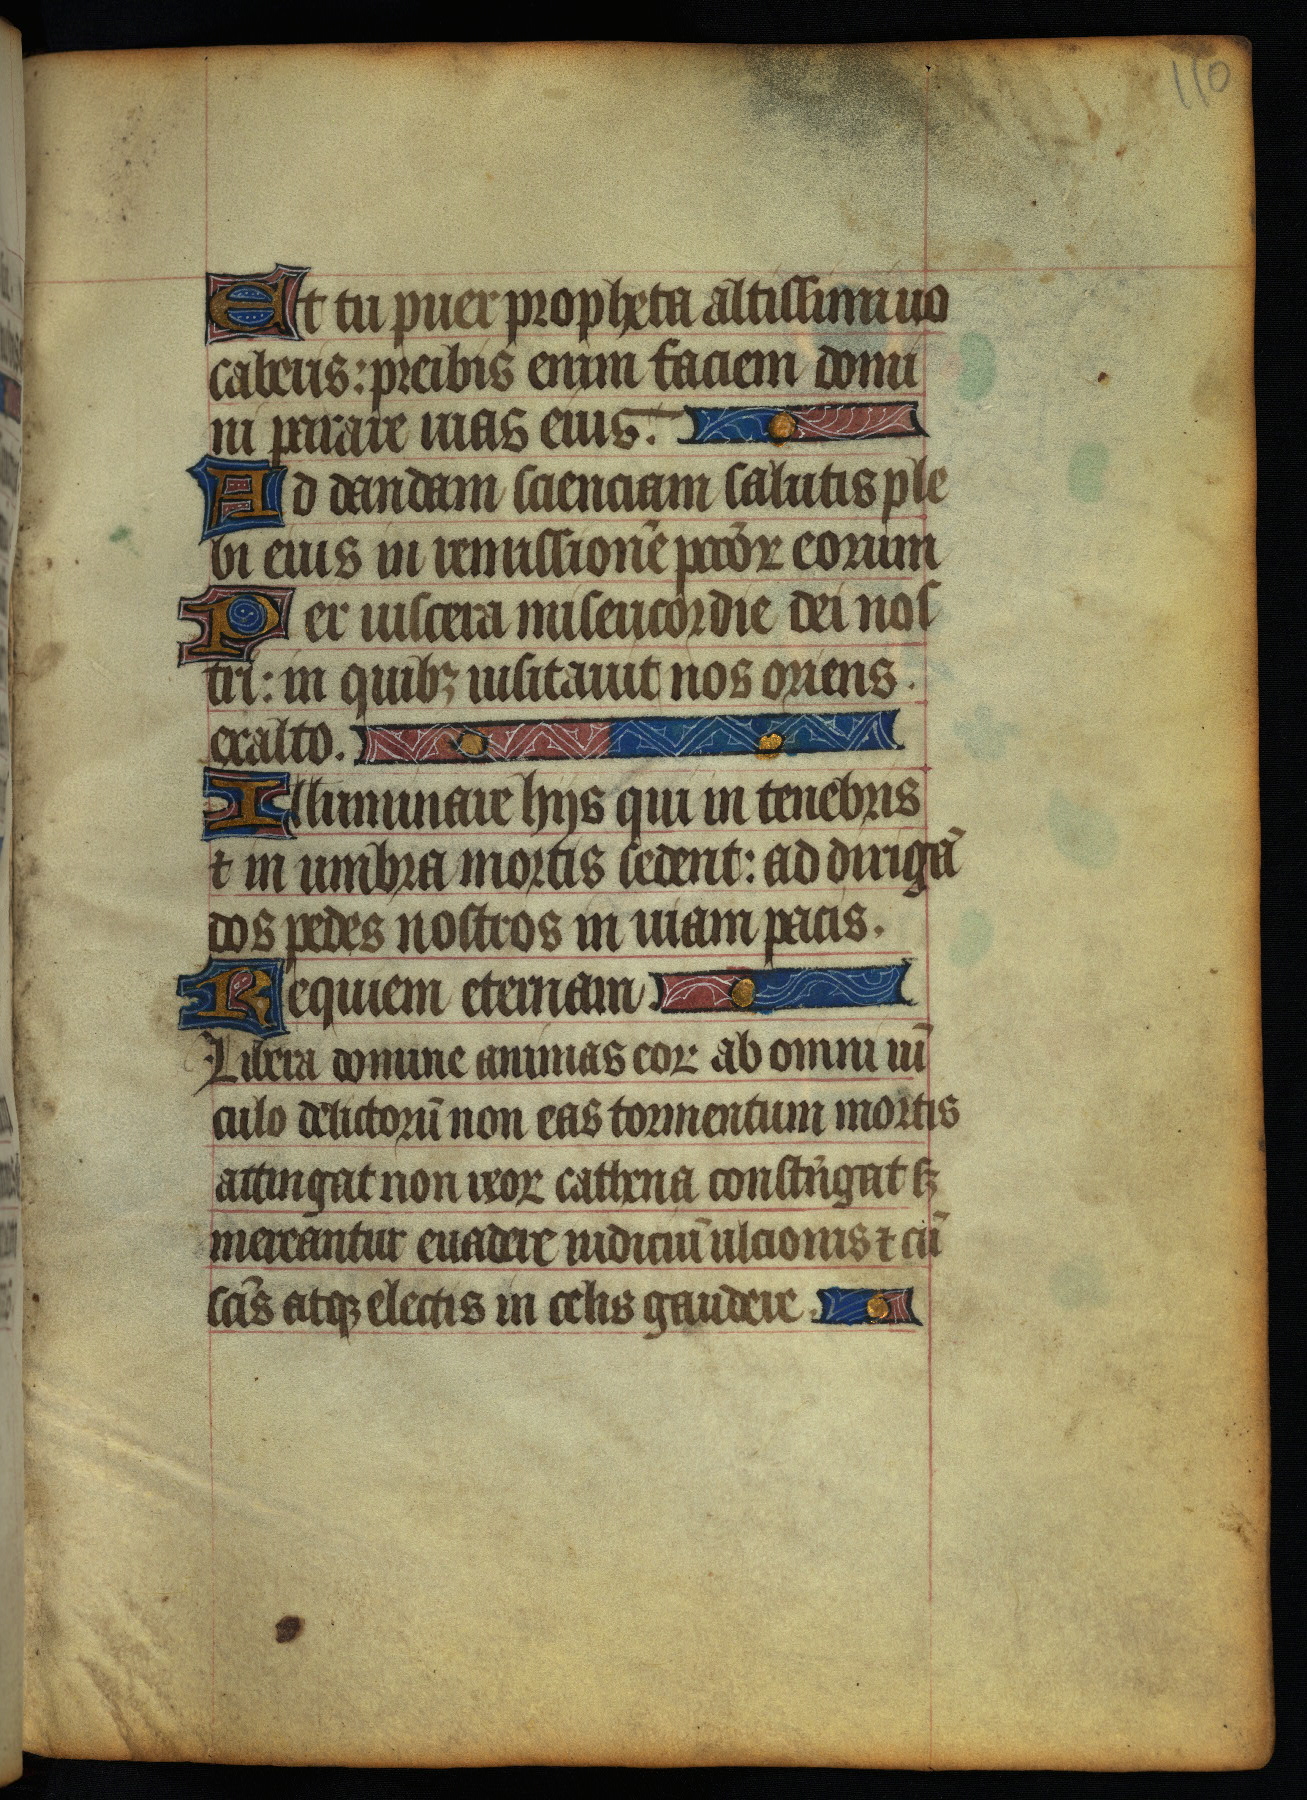 110
Et tu puer propheta altissimi uo
caberis: preibis enim faciem domi
ni parare uias eius.
Ad dandam scienciam salutis ple
bi eius in remissionē pccōꝝ eorum
Per uiscera misericordie dei nos
tri: in quibꝫ uisitauit nos oriens.
exalto.
Illuminare hijs qui in tenebris
⁊ in umbra mortis sedent: ad dirigā
dos pedes nostros in uiam pacis.
Requiem eternam.
Libera domine animas eoꝝ ab omni uī
culo delictorū non eas tormentum mortis
attingat non reoꝝ cathena constrīgat sꝫ
mereantur euadere iudiciū ulcionis ⁊ cū
scīs atqꝫ electis in celis gaudere.